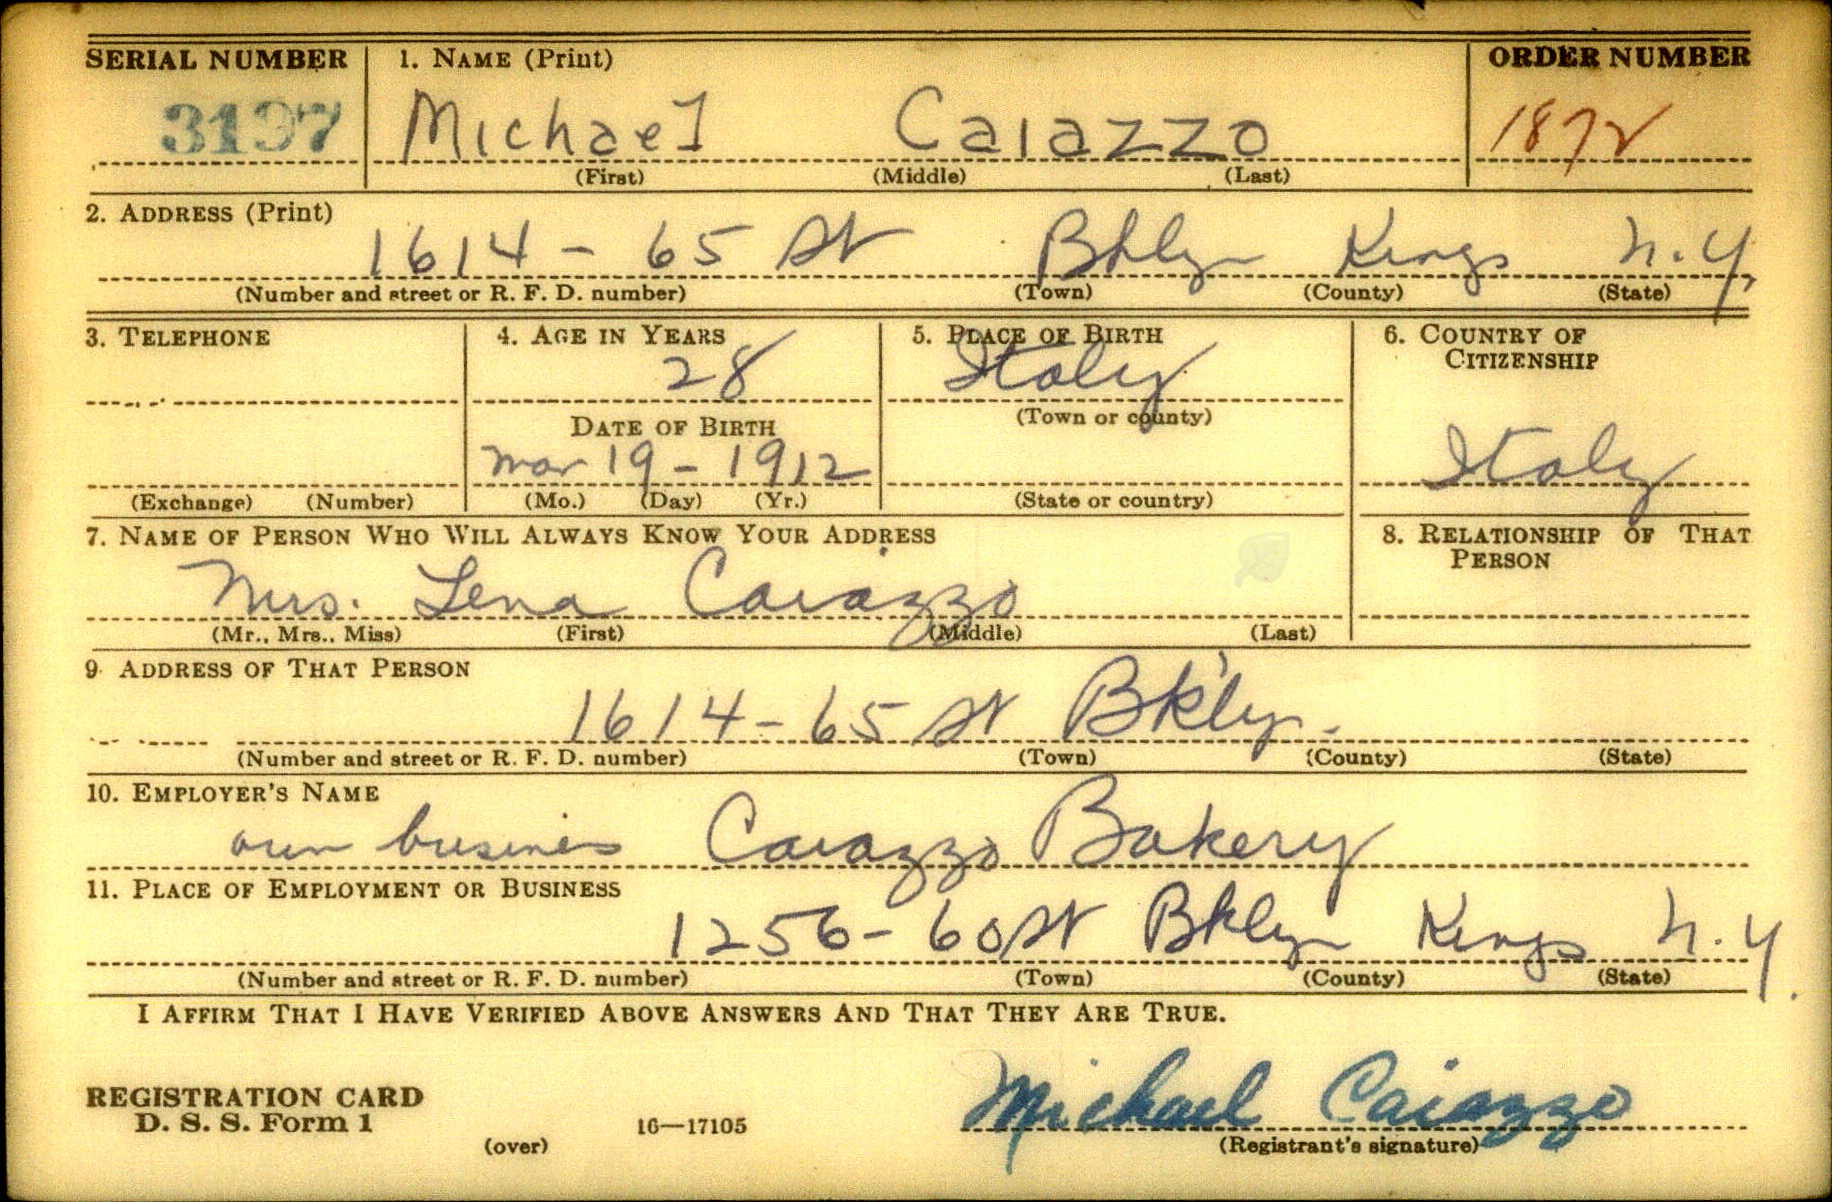 SERIAL NUMBER 1. NAME (Print) ORDER NUMBER
3197 Michael Caiazzo 1872
(First) (Middle) (Last)
2. ADDRESS (Print)
1614 - 65 St Bklyn Kings N.Y.
(Number and street or R. F. D. number) (Town) (County) (State)
3. TELEPHONE 4. AGE IN YEARS 5. PLACE OF BIRTH 6. COUNTRY OF CITIZENSHIP
28 Italy
DATE OF BIRTH (Town or county)
Mar 19 - 1912 Italy
(Exchange) (Number) (Mo.) (Day) (Yr.) (State or country)
7. NAME OF PERSON WHO WILL ALWAYS KNOW YOUR ADDRESS 8. RELATIONSHIP OF THAT PERSON
Mrs. Lena Caiazzo
(Mr., Mrs., Miss) (First) (Middle) (Last)
9. ADDRESS OF THAT PERSON
1614 - 65 St Bk'lyn.
(Number and street or R. F. D. number) (Town) (County) (State)
10. EMPLOYER'S NAME
own busines Caiazzo Bakery
11. PLACE OF EMPLOYMENT OR BUSINESS
1256 - 60 St Bklyn Kings N.Y.
(Number and street or R. F. D. number) (Town) (County) (State)
I AFFIRM THAT I HAVE VERIFIED ABOVE ANSWERS AND THAT THEY ARE TRUE.
REGISTRATION CARD
D. S. S. Form 1 Michael Caiazzo
(over) 16—17105 (Registrant's signature)